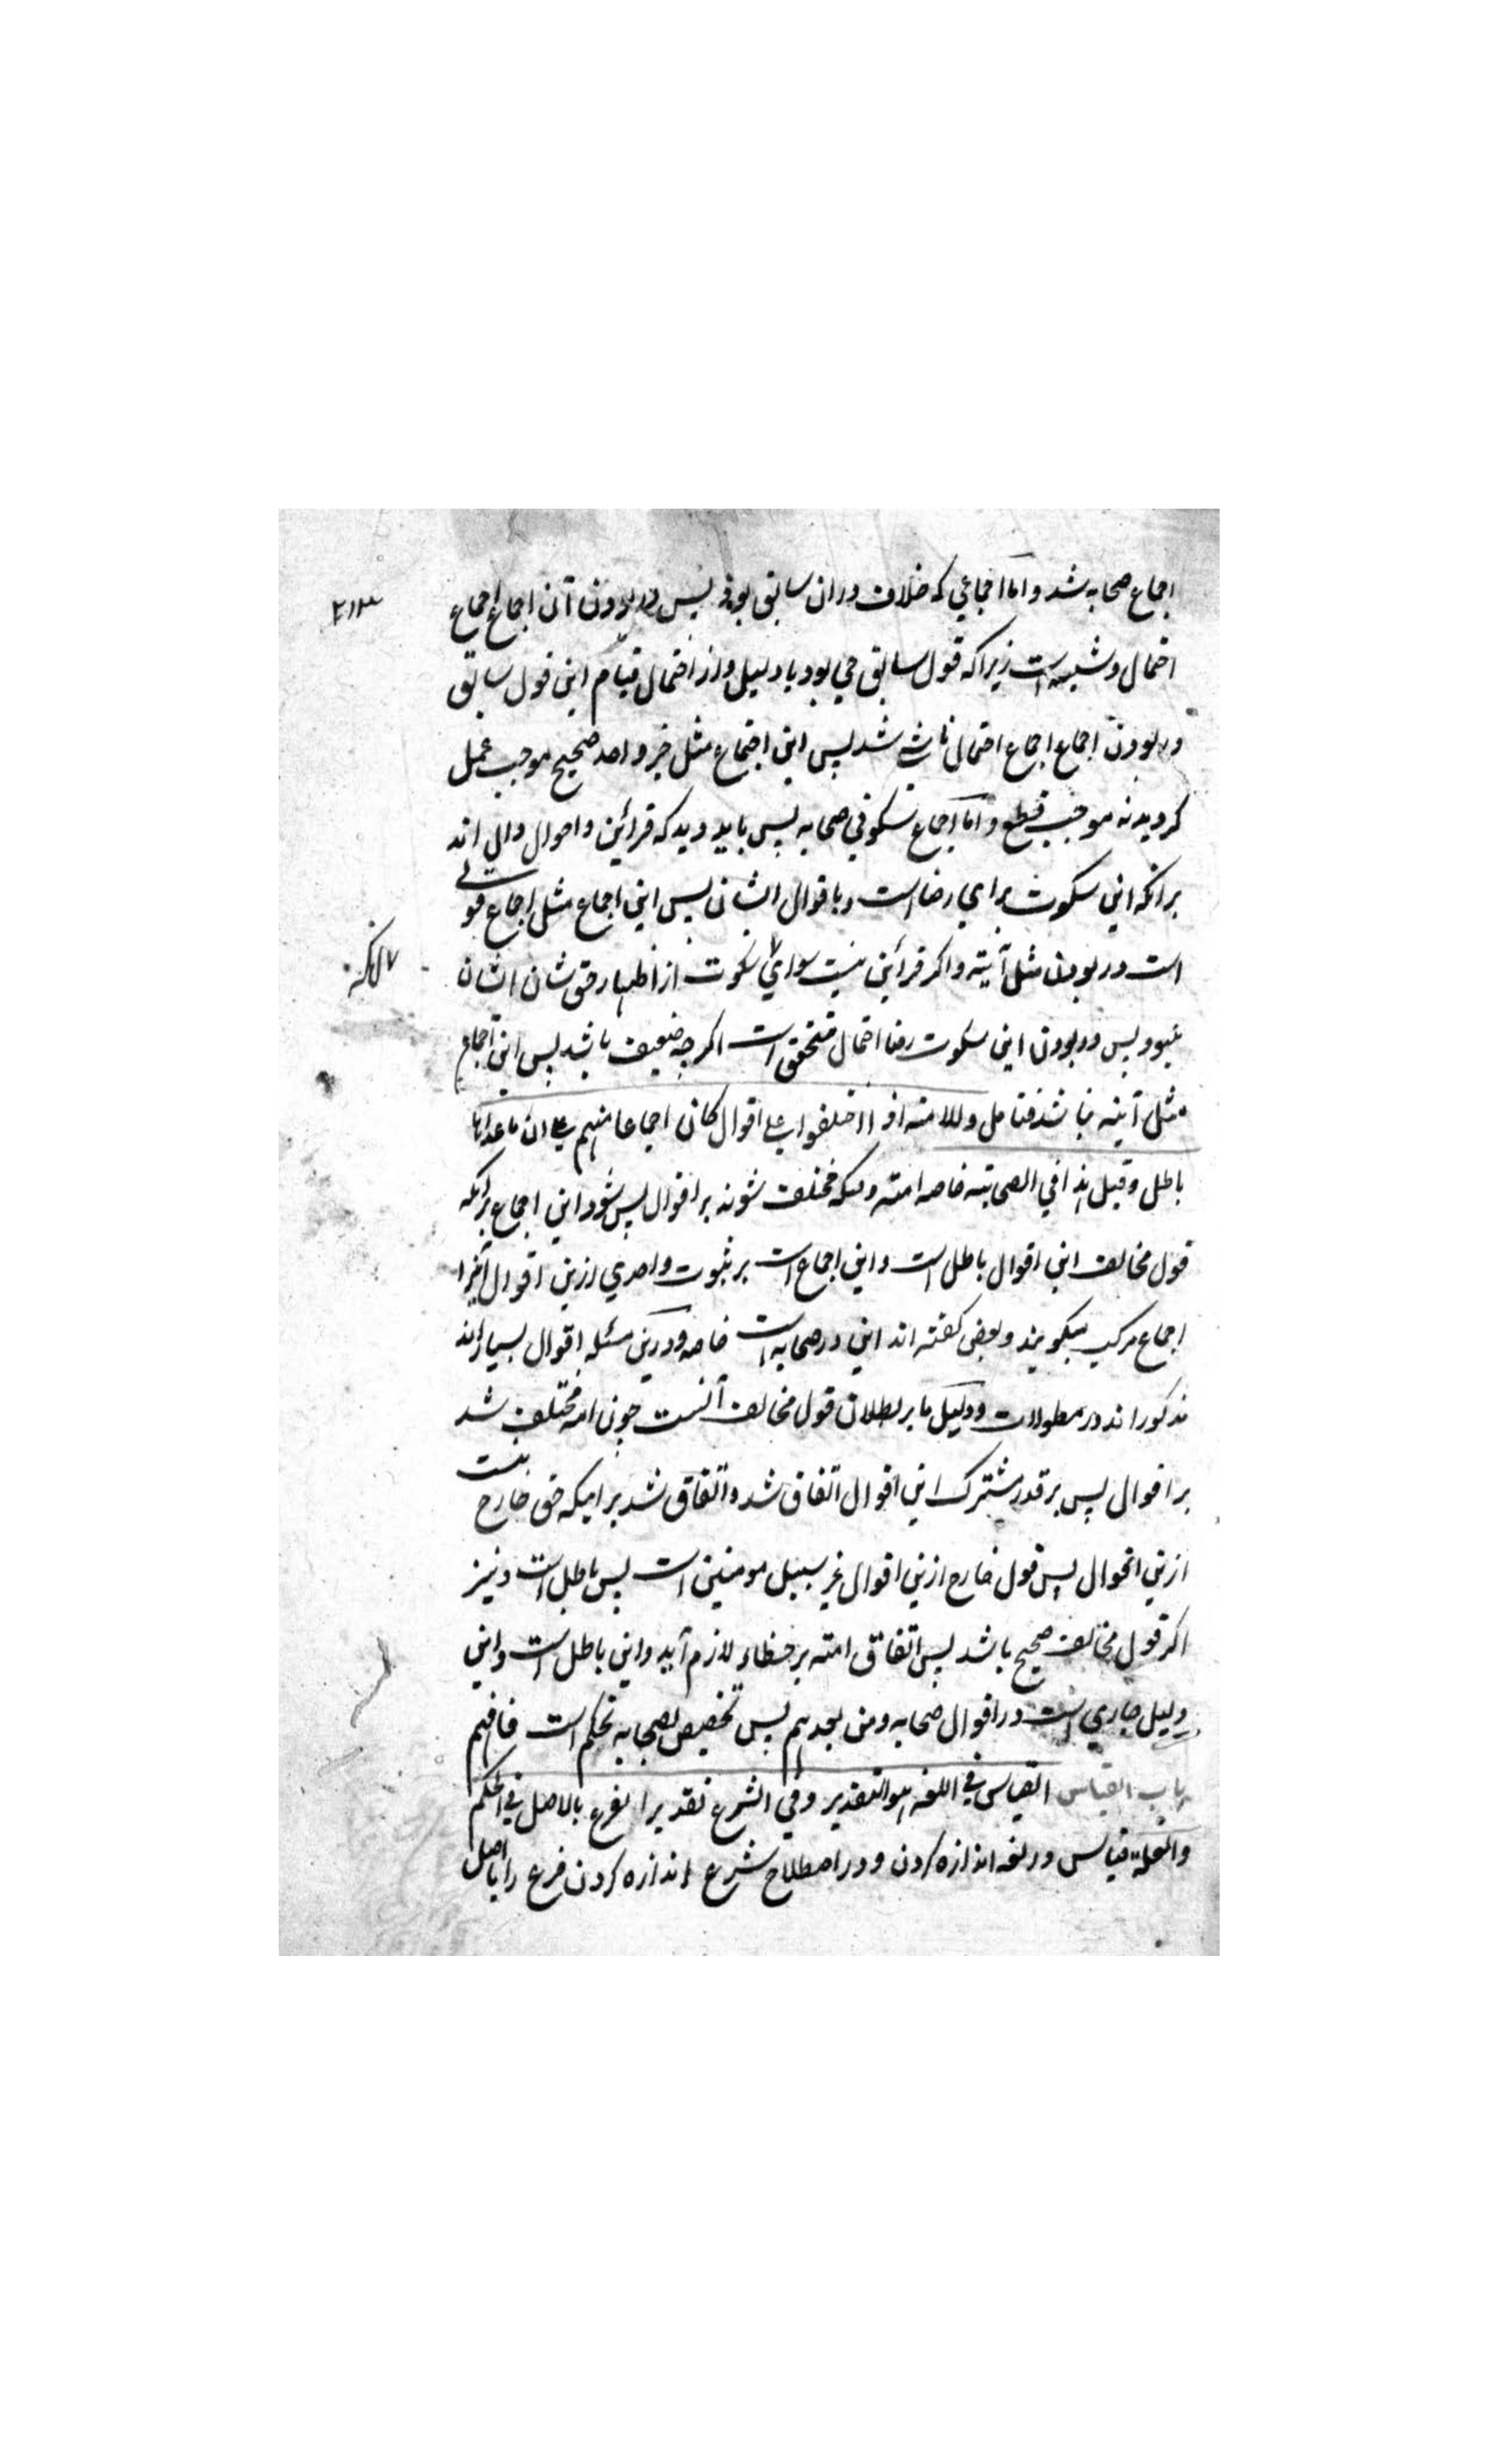 اجماع صحابه شد و اما اجماعي که خلاف دران سابق بود پس در بودن آن اجماع اجماع
احتمال و شبهه است زیرا که قول سابق حي بود با دلیل و از احتمال قیام این قول سابق
در بودن اجماع اجماع احتمالی ناشي شد پس این اجماع مثل خبر واحد صحیح موجب عمل
کردید نه موجب قطع و اما اجماع سکوتي صحابه پس باید دید که قرائن و احوال دال اند
برانکه این سکوت براي رضا است باقوال ایشان پس این اجماع مثل اجماع قولے
است در بودن مثل آیته و اکر قرائن نیست سواي سکوت از اظهار حق شان ایشان
نبود پس در بودن این سکوت رضا احتمال متحقق است اکرچه ضعیف باشد پس این اجماع
مثل آیته نباشد فتامل والامته اذا اختلفوا علے اقوال کان اجماعا منهم علے ان ماعداها
باطل و قیل هذا في الصحابته خاصه امته وقتیکه مختلف شوند بر اقوال پس شود این اجماع برآنکه
قول مخالف این اقوال باطل است و این اجماع است بر ثبوت واحدي ازین اقوال آنرا
اجماع مرکب میکویند و بعض کفته اند این در صحابه است خاصه و درین مسئله اقوال بسیار اند
مذکور اند در مطولات و دلیل ما بر بطلان قول مخالف آنست چون امه مختلف شد
بر اقوال پس بر قدر مشترک این اقوال اتفاق شد و اتفاق شد بر اینکه حق خارج نیست
ازین اقوال پس قول خارج ازین اقوال غیر سبیل مومنین است پس باطل است و نیز
اکر قول مخالف صحیح باشد پس اتفاق امته بر خطاء لازم آید و این باطل است و این
دلیل جاري است در اقوال صحابه و من بعدهم پس تخصیص بصحابه تحکم است فافهم
باب القیاس القیاس في اللغه هو التقدیر و في الشرع تقدیر الفرع بالاصل في الحکم
والعلة قیاس در لغه اندازه کردن و در اصطلاح شرع اندازه کردن فرع را باصل